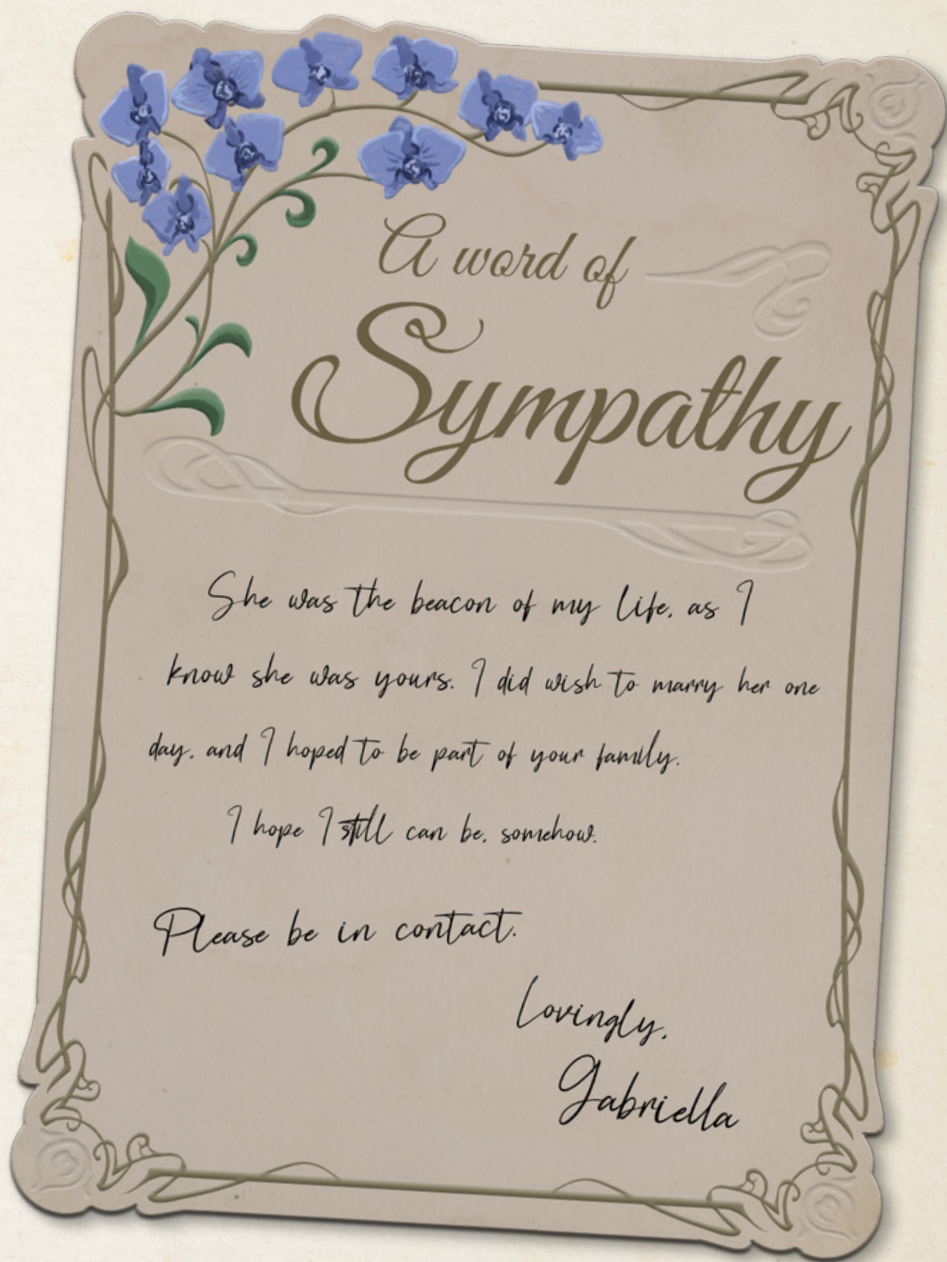 A word of
Sympathy
She was the beacon of my life, as I
know she was yours. I did wish to marry her one
day, and I hoped to be part of your family.
I hope I still can be, somehow.
Please be in contact.
Lovingly,
Gabriella